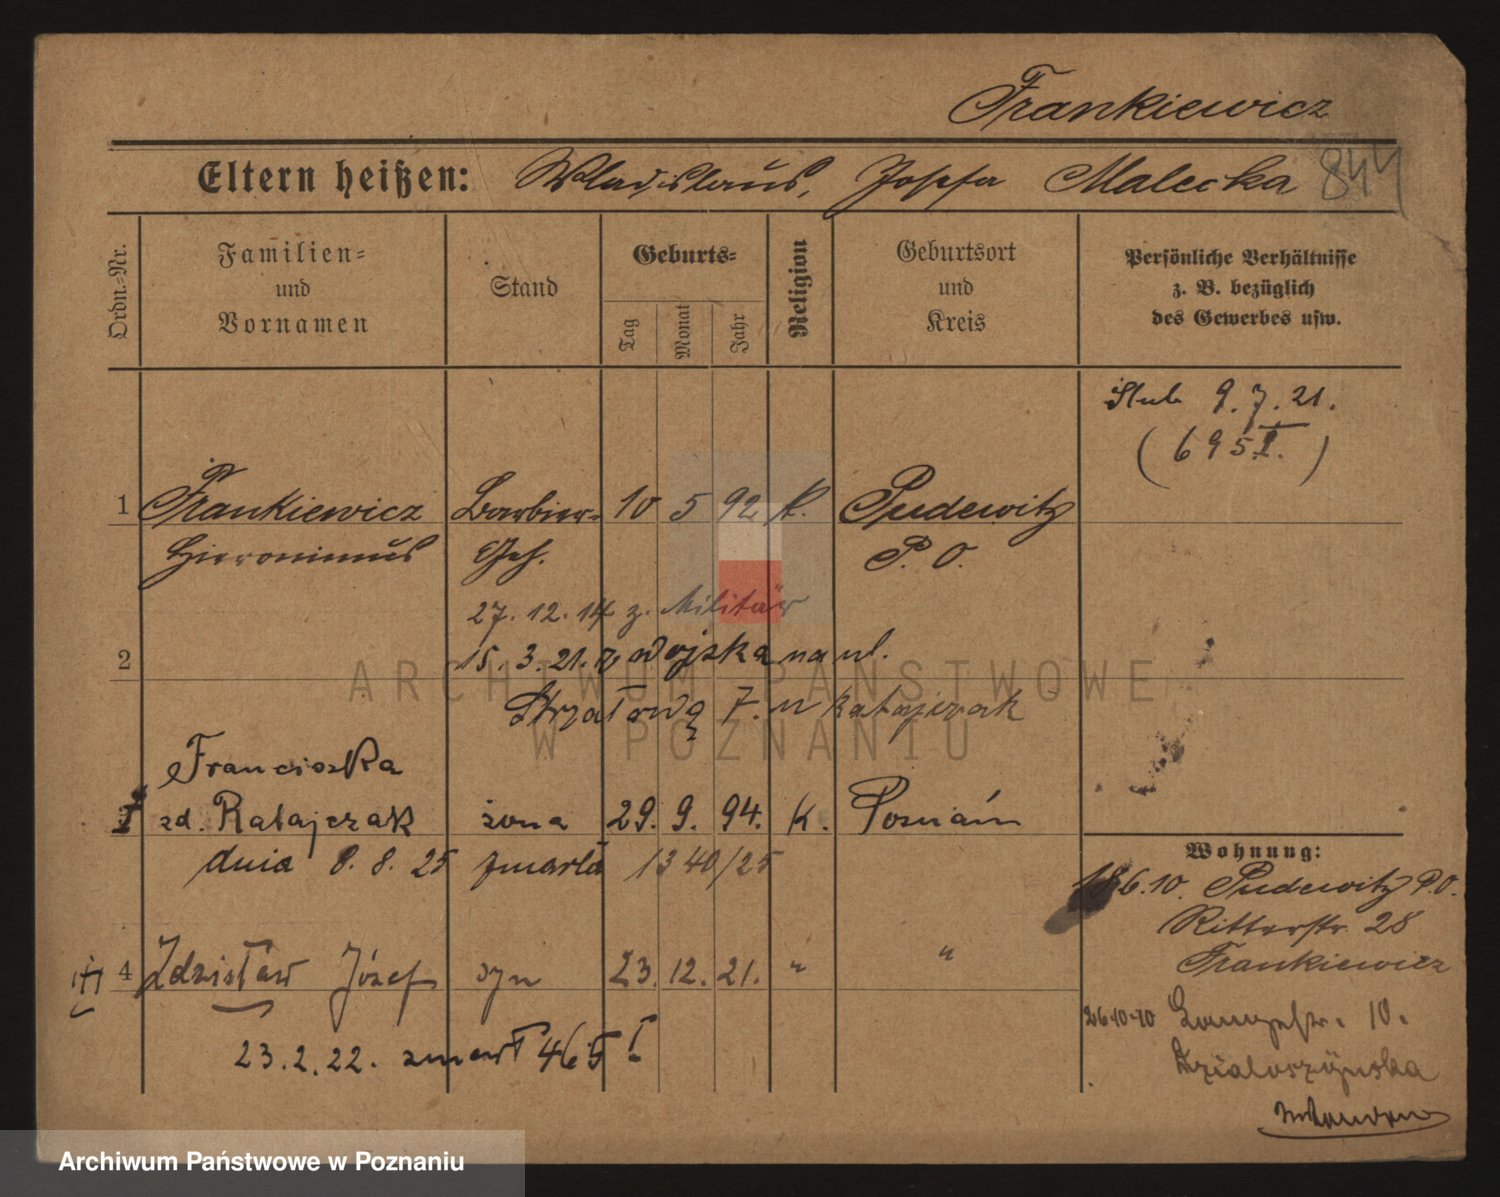 Frankiewicz
Eltern heißen: Wladislaus, Josefa Malecka 844
Ordn.-Nr.
Familien- und Vornamen
Stand
Geburts-
Tag Monat Jahr
Religion
Geburtsort und Kreis
Persönliche Verhältnisse
z. B. bezüglich
des Gewerbes usw.
Slub 9.7.21.
(695 I.)
1 Frankiewicz Barbier- 10 5 92 k. Pudewitz
Hieronimus Geh. P. O.
27. 12. 14 z. Militär
2 15. 3. 21. z wojska na ul.
Strzałową 7. u Ratajczak
Franciszka
zd. Ratajczak żona 29. 9. 94. k. Poznań
dnia 8. 8. 25 zmarła 1340/25
4 Zdzisław Józef syn 23. 12. 21. " "
23.2.22. zmarł 465 I
Wohnung:
18.6.10. Pudewitz P.O.
Ritterstr. 28
Frankiewicz
26.10.10 Langestr. 10.
Działoszyńska
ARCHIWUM PAŃSTWOWE
W POZNANIU
Archiwum Państwowe w Poznaniu